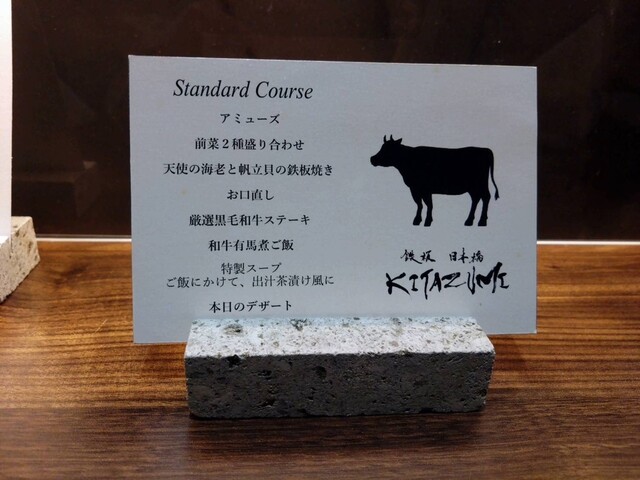 Standard Course
アミューズ
前菜２種盛り合わせ
天使の海老と帆立貝の鉄板焼き
お口直し
厳選黒毛和牛ステーキ
和牛有馬煮ご飯
特製スープ
ご飯にかけて、出汁茶漬け風に
本日のデザート
鉄板 日本橋
KITAZUME